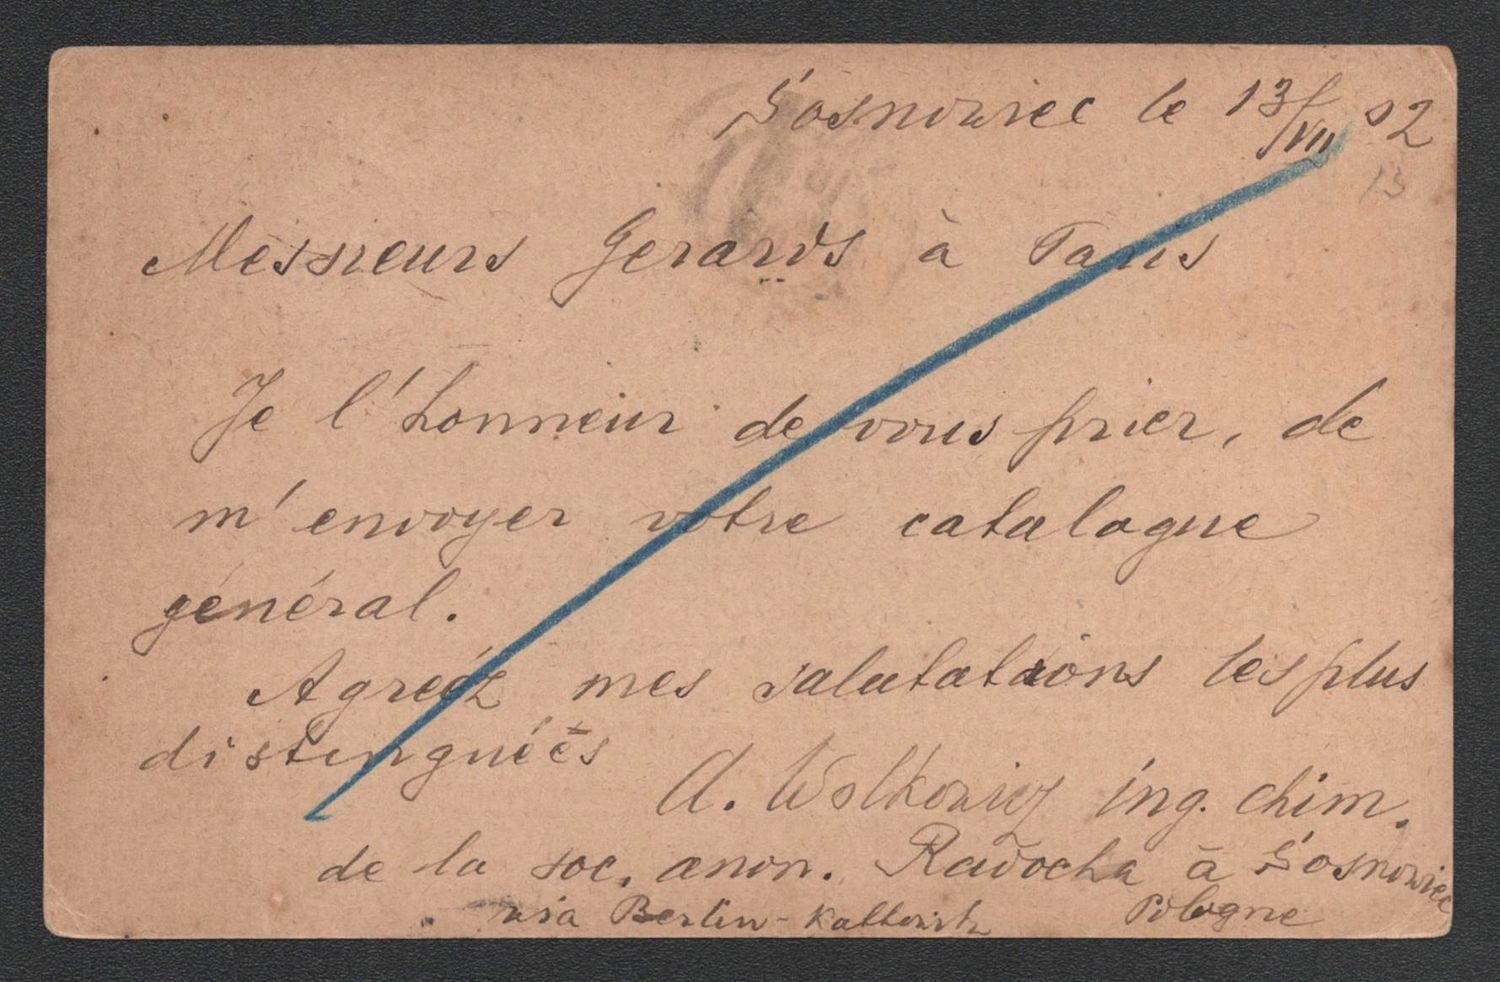 Sosnowiec le 13/VII 02
13
Messieurs Gerards à Paris
Je l'honneur de vous prier, de
m'envoyer votre catalogue
général.
Agreéz mes salutations les plus
distinguéés
A. Wolkowicz ing. chim.
de la soc. anon. Radocha à Sosnowiec
via Berlin-Kattowitz Pologne